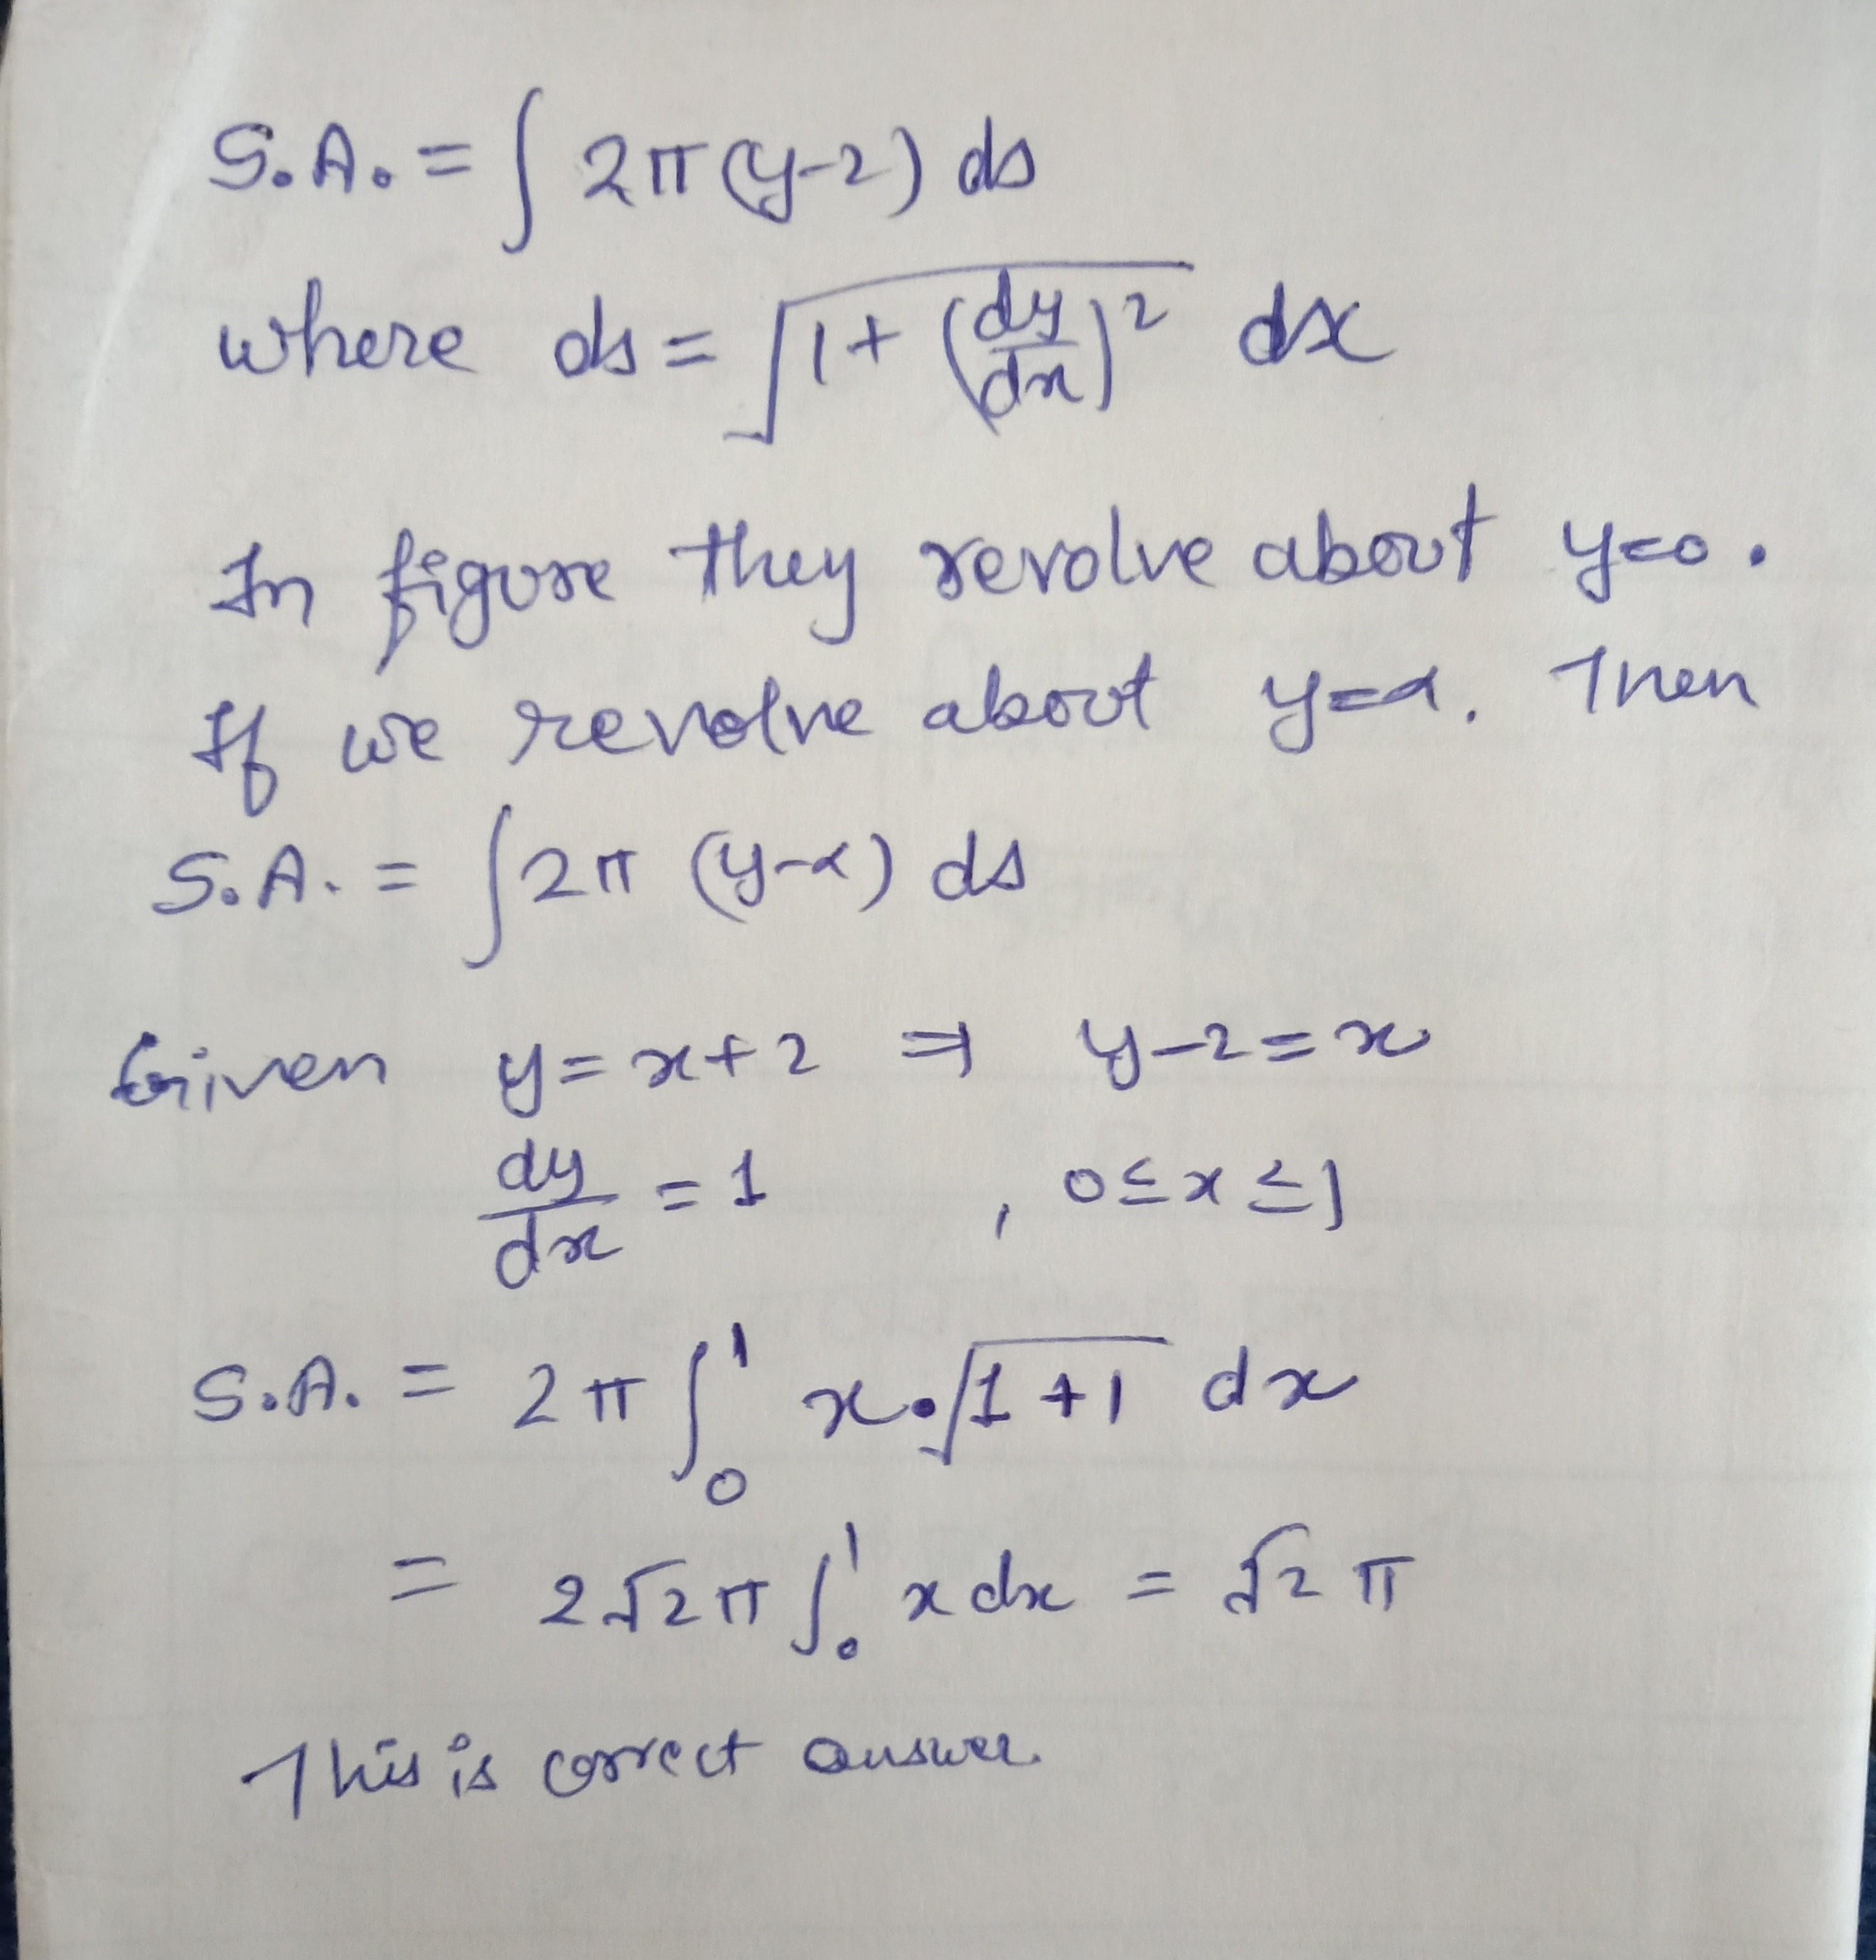 S.A. = ∫ 2π (y-2) ds
where ds = √(1 + (dy/dx)²) dx
In figure they revolve about y=0.
If we revolve about y=α. Then
S.A. = ∫ 2π (y-α) ds
Given y = x+2 ⇒ y-2 = x
dy/dx = 1 , 0 ≤ x ≤ 1
S.A. = 2π ∫₀¹ x.√(1+1) dx
= 2√2π ∫₀¹ x dx = √2 π
This is correct answer.